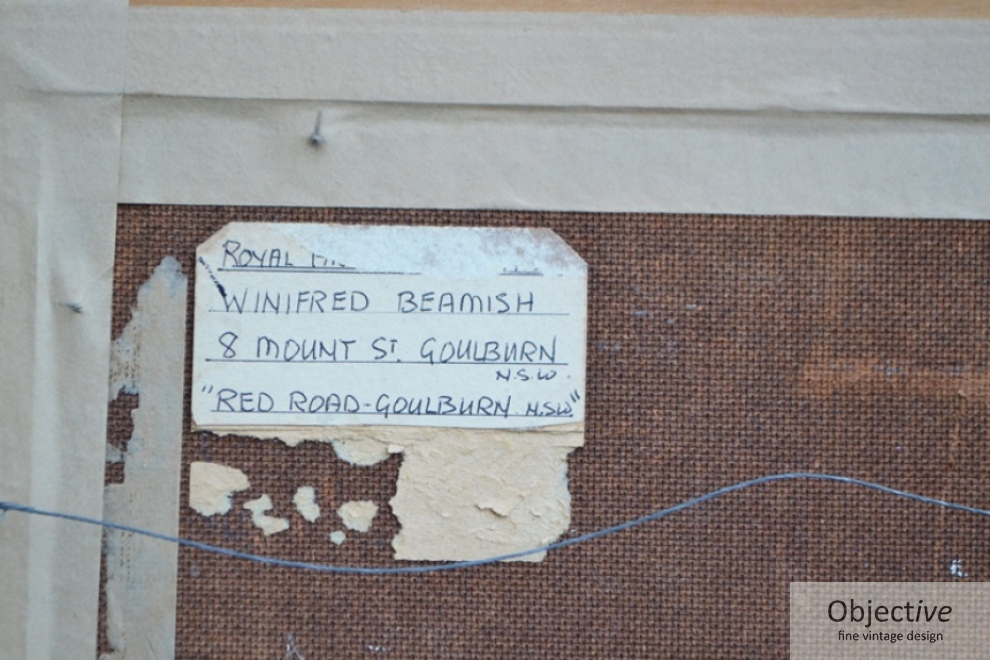 ROYAL
WINIFRED BEAMISH
8 MOUNT ST. GOULBURN
N.S.W.
"RED ROAD-GOULBURN. N.SW"
Objective
fine vintage design